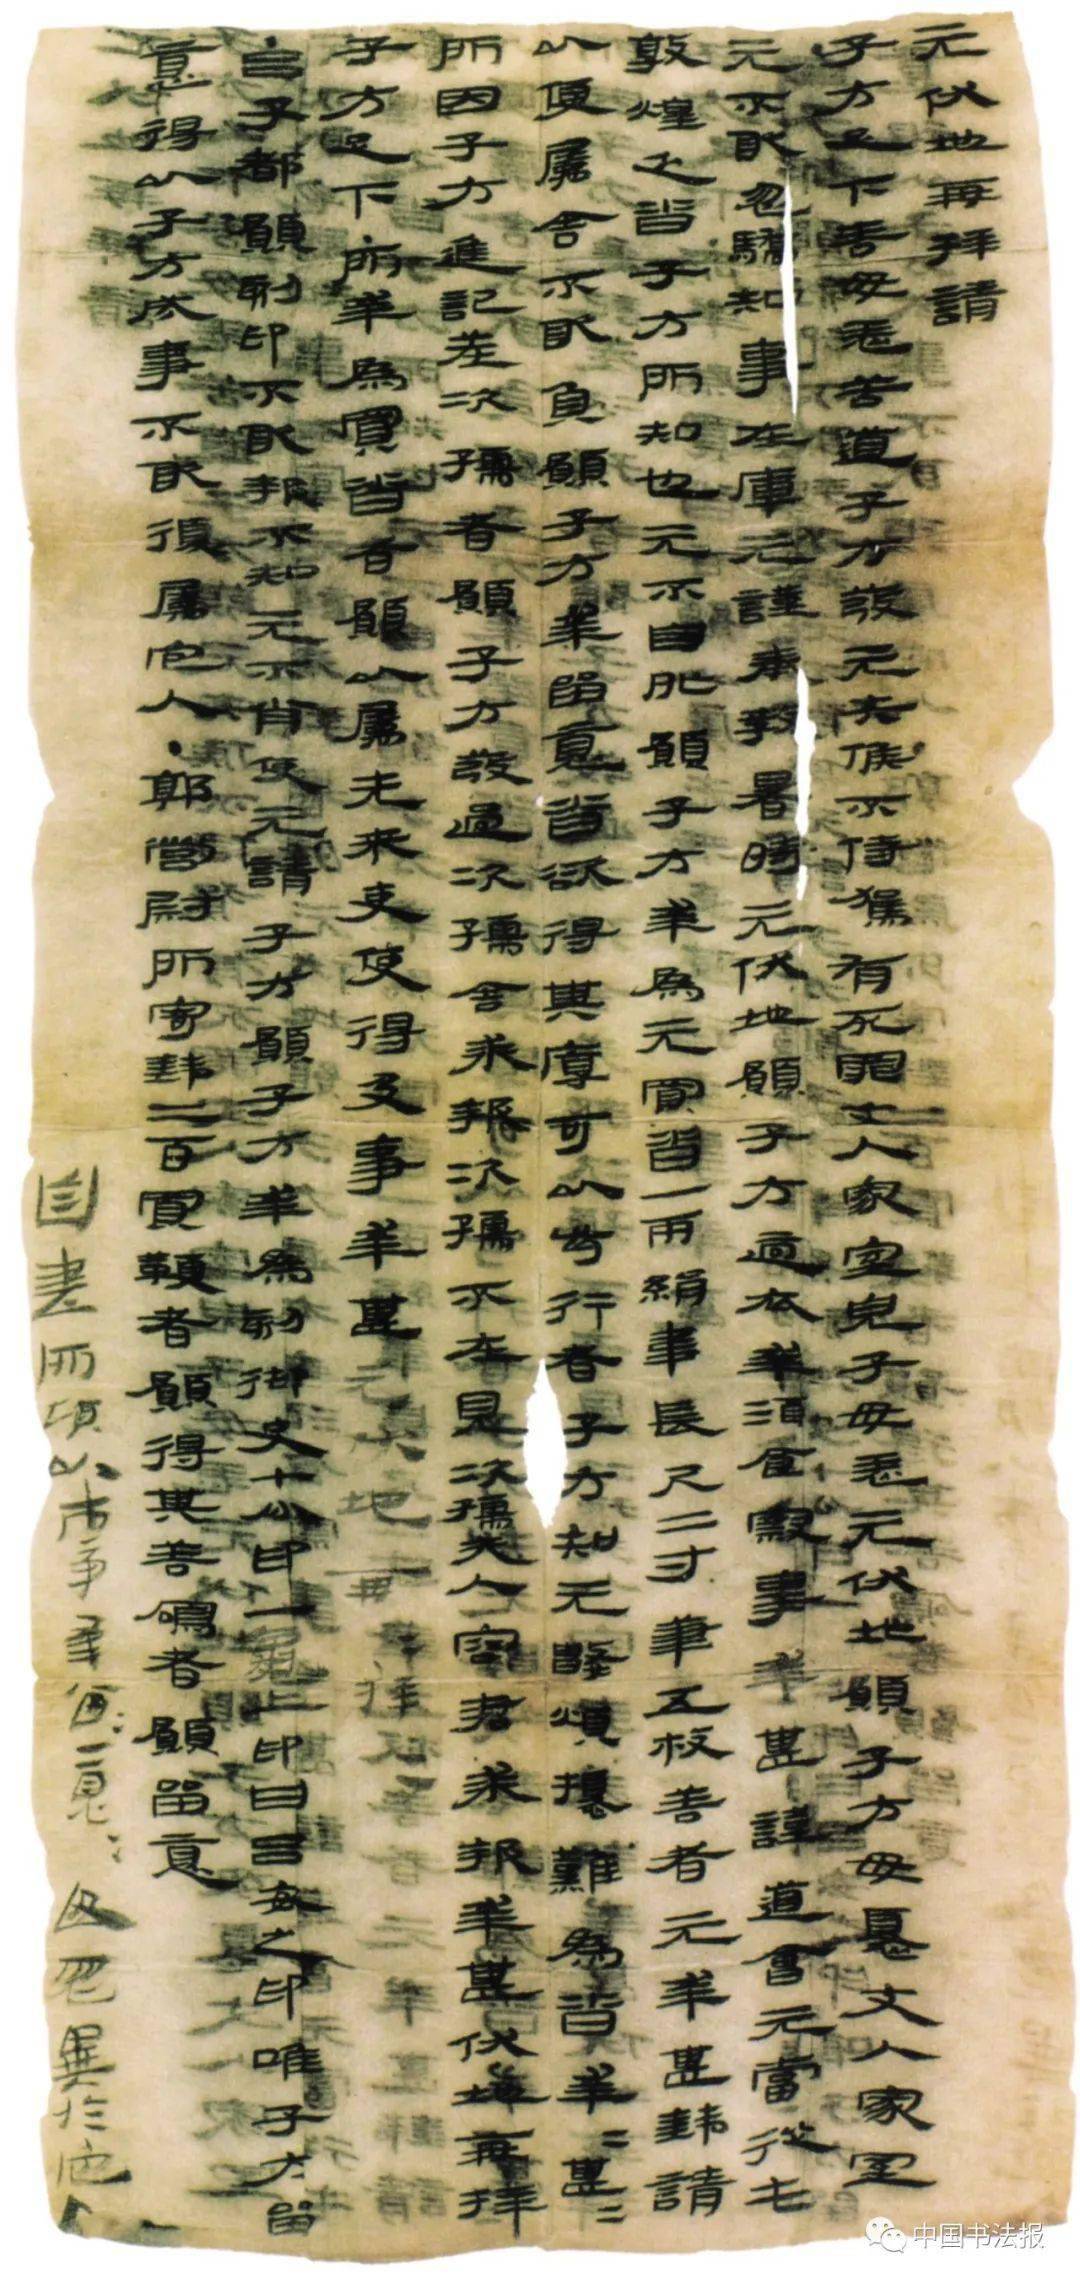 元伏地再拜請
子方足下善毋恙苦道子方發元失候不侍駕有死罪丈人家室兒子毋恙元伏地願子方毋憂丈人家室
元不敢忽驕知事在庫元謹奉教暑時元伏地願子方適衣幸酒食察事幸甚謹道會元當從屯
敦煌乏沓子方所知也元不自外願子方幸為元買沓一兩絹韋長尺二寸筆五枚善者元幸甚錢請
以便屬舍不敢負願子方幸留意沓欲得其厚可以步行者子方知元數煩擾難為沓幸＝甚＝
所因子方進記差次孺者願子方發過次孺舍求報次孺不在見次孺夫人容君求報幸甚伏地再拜
子方足下·所幸為買沓者願以屬先來吏使得及事幸甚元伏地再拜再拜
·呂子都願刻印不敢報不知元不肖使元請子方願子方幸為刻御史七分印一龜上印曰呂安之印唯子方留
意得以子方成事不敢復屬它人·郭營尉所寄錢二百買鞭者願得其善鳴者願留意
自書所願以市事幸留＝意＝毋忽異於它人
中国书法报